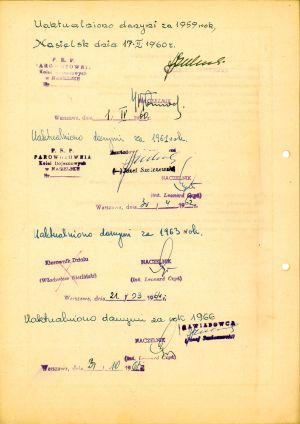 Uaktualniono danymi za 1959 rok,
Nasielsk dnia 17.II 1960 r.
P. K. P.
PAROWOZOWNIA
Kolei Dojazdowych
w NASIELSKU
NACZELNIK
Warszawa, dnia 1. IV 60.
Uaktualniono danymi za 1961 rok.
P. K. P.
PAROWOZOWNIA
Kolei Dojazdowych
w NASIELSKU
Zawiadowca
(-) Józef Szczerowski
NACZELNIK
(inż. Leonard Cupd)
Warszawa, dnia 31. 4 1962
Uaktualniono danymi za 1963 rok.
Kierownik Działu
NACZELNIK
(Władysław)
(inż. Leonard Cupd)
Warszawa, dnia 21. 03 1964 r.
Uaktualniono danymi za rok 1966
NACZELNIK
ZAWIADOWCA
(inż. Leonard Cupd)
(Józef)
Warszawa, dnia 31. 10 196